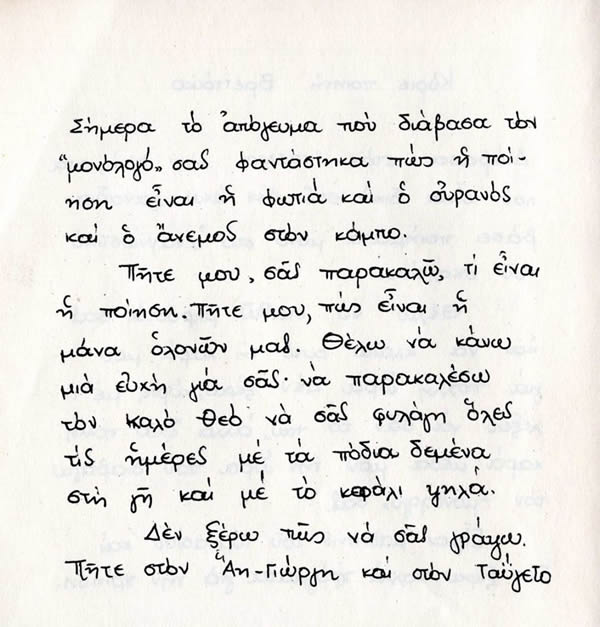 Σήμερα τὸ ἀπόγευμα ποὺ διάβασα τὸν
"μονόλογό,, σας φαντάστηκα πὼς ἡ ποί-
ηση εἶναι ἡ φωτιὰ καὶ ὁ οὐρανὸς
καὶ ὁ ἄνεμος στὸν κάμπο.
Πῆτε μου, σᾶς παρακαλῶ, τί εἶναι
ἡ ποίηση. Πῆτε μου, πὼς εἶναι ἡ
μάνα ὁλονῶν μας. Θέλω νὰ κάνω
μιὰ εὐχὴ γιὰ σᾶς· νὰ παρακαλέσω
τὸν καλὸ Θεὸ νὰ σᾶς φυλάγη ὅλες
τὶς ἡμέρες μὲ τὰ πόδια δεμένα
στὴ γῆ καὶ μὲ τὸ κεφάλι ψηλά.
Δὲν ξέρω πῶς νὰ σᾶς γράψω.
Πῆτε στὸν Ἅη-Γιώργη καὶ στὸν Ταΰγετο